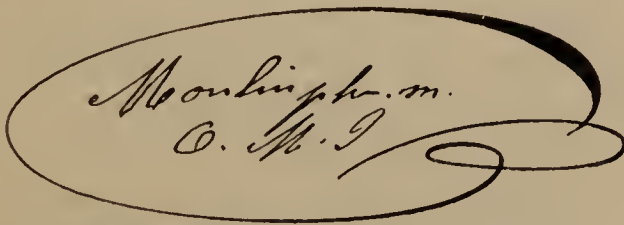 Moulin ph. m.
O. M. I